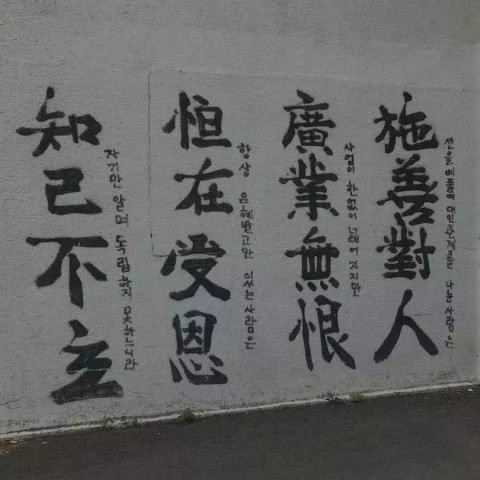 施善對人
선을 베품에 대인관계를 나눈 사람은
廣業無恨
사업이 한없이 지만
恒在受恩
항상 은혜받고만 있는 사람은
知己不立
자기만 알며 독립하지 못하느니라